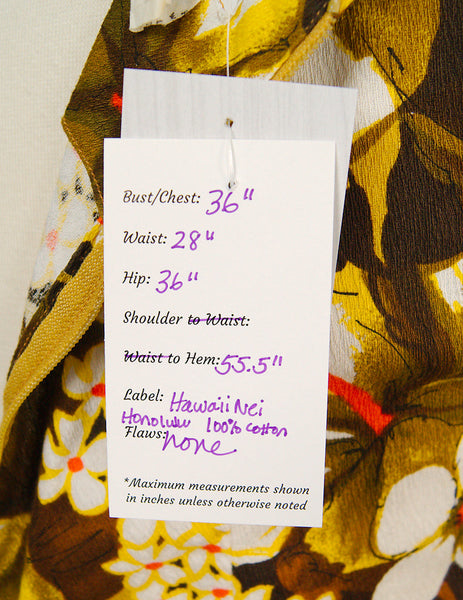 Bust/Chest: 36"
Waist: 28"
Hip: 36"
Shoulder to Waist:
Waist to Hem: 55.5"
Label: Hawaii Nei
Honolulu 100% cotton
Flaws: none
*Maximum measurements shown
in inches unless otherwise noted